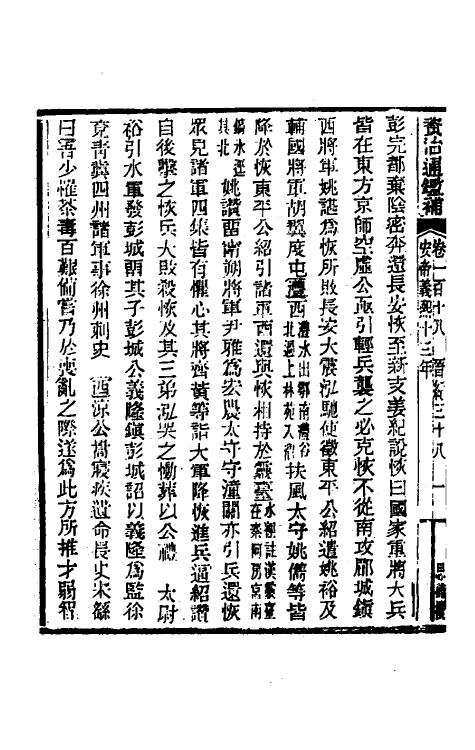 資治通鑑補 卷一百十八 晉紀三十八 一 思補樓
安帝義熙十三年
彭完都棄陰密奔還長安恢至新支姜紀說恢曰國家重將大兵
皆在東方京師空虛公亟引輕兵襲之必克恢不從南攻郿城鎮
西將軍姚諶爲恢所敗長安大震泓馳使徵東平公紹遣姚裕及
輔國將軍胡翼度屯灃西灃水出鄠南灃谷北過上林苑入渭扶風太守姚儁等皆
降於恢東平公紹引諸軍西還與恢相持於靈臺水經註漢靈臺在秦阿房宮南
鎬水逕其北姚讚留甯朔將軍尹雅爲宏農太守守潼關亦引兵還恢
衆見諸軍四集皆有懼心其將齊黃等詣大軍降恢進兵逼紹讚
自後擊之恢兵大敗殺恢及其三弟泓哭之慟葬以公禮 太尉
裕引水軍發彭城留其子彭城公義隆鎮彭城詔以義隆爲監徐
兗青冀四州諸軍事徐州刺史 西涼公暠寢疾遺命長史宋繇
曰吾少罹荼毒百艱備嘗乃於喪亂之際遂爲此方所推才弱智